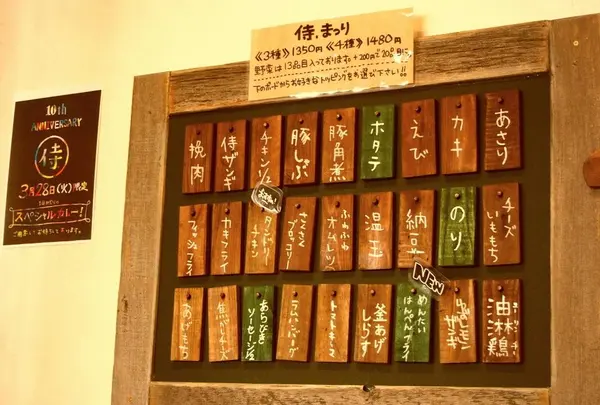 侍.まつり
《3種》1350円 《4種》1480円
野菜は13品目入っております +200円で20品目に
下のボードからお好きなトッピングをお選び下さい!!
10th
ANNIVERSARY
侍
3月28日(火)限定
スペシャルカレー!
ご用意してお待ちしてます。
挽肉
侍ザンギ
チキン1/2
豚しゃぶ
豚角煮
ホタテ
えび
カキ
あさり
フィッシュフライ
カキフライ
タンドリーチキン
さくさくブロッコリー
ふわふわオムレツ
温玉
納豆
のり
チーズいももち
あげもち
焦がしチーズ
あらびきソーセージ1/2
ラムハンバーグ
トマトキムチ
釜あげしらす
めんたいはんぺんフライ
NEW
油淋鶏